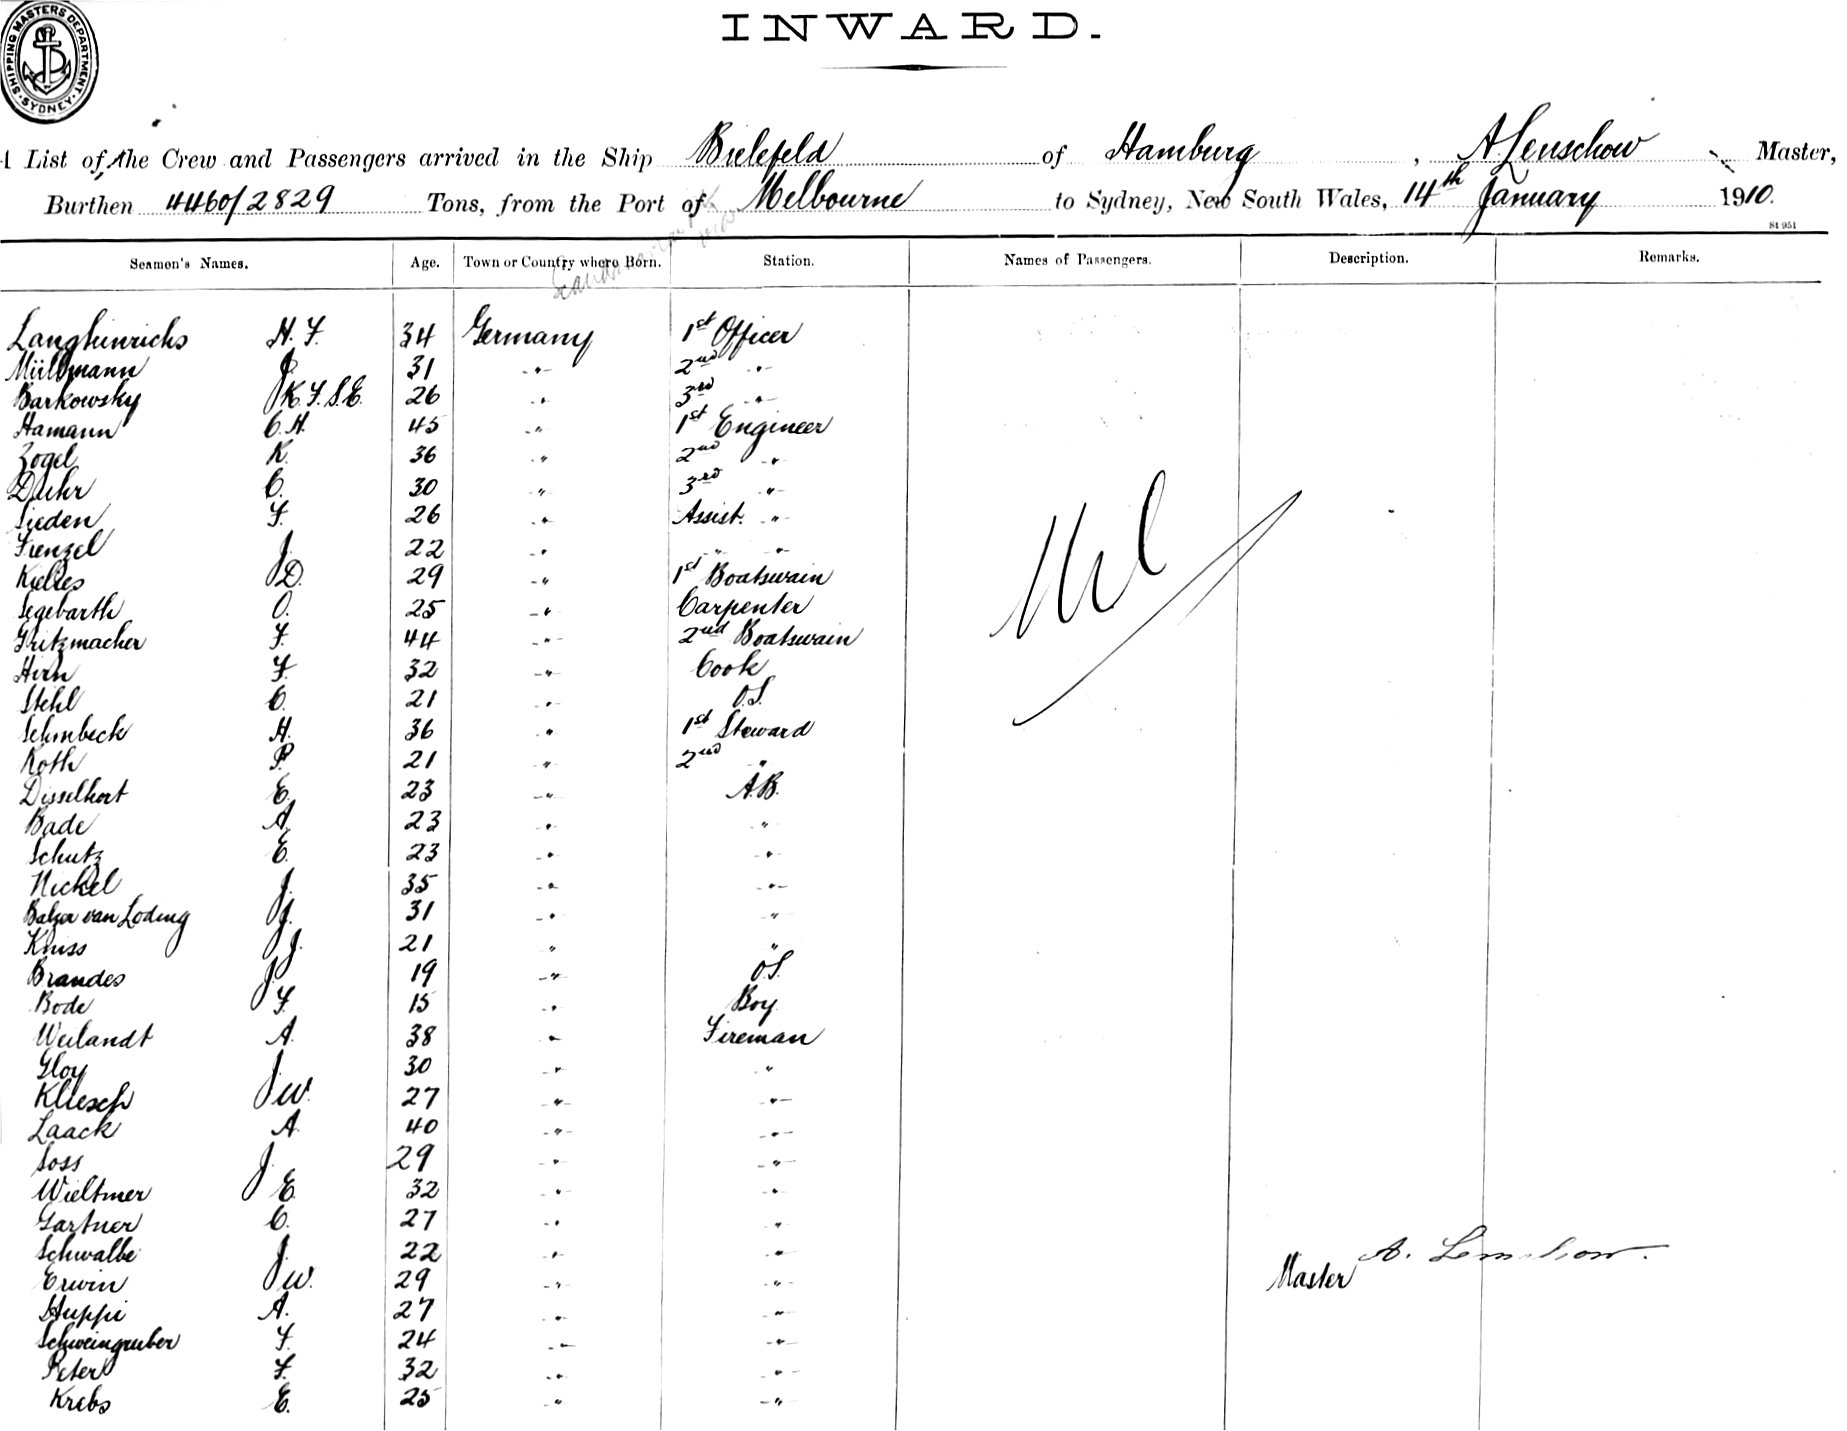 SHIPPING MASTERS DEPARTMENT SYDNEY
INWARD.
A List of the Crew and Passengers arrived in the Ship Bielefeld of Hamburg, A Lenschow Master,
Burthen 4460/2829 Tons, from the Port of Melbourne to Sydney, New South Wales, 14th January 1910.
St 951
Seamen's Names. Age. Town or Country where Born. Station. Names of Passengers. Description. Remarks.
Langhinrichs H. F. 34 Germany 1st Officer
Müllmann J. 31 -"- 2nd -"-
Barkowsky K. F. S. E. 26 -"- 3rd -"-
Hamann C. H. 45 -"- 1st Engineer
Zogel K. 36 -"- 2nd -"-
Duhr C. 30 -"- 3rd -"-
Sieden F. 26 -"- Assist. -"-
Frenzel J. 22 -"- -"- -"-
Kielres D. 29 -"- 1st Boatswain
Segebarth O. 25 -"- Carpenter
Gritzmacher F. 44 -"- 2nd Boatswain
Hirn F. 32 -"- Cook
Stehl C. 21 -"- O.S.
Schmbeck H. 36 -"- 1st Steward
Roth P. 21 -"- 2nd "
Disselhort E. 23 -"- A.B.
Bade A. 23 -"- "
Schutz E. 23 -"- -"-
Nickel J. 35 -"- -"-
Balzer van Loding J. 31 -"- -"-
Kniss J. 21 " "
Brandes J. 19 -"- O.S.
Bode F. 15 -"- Boy
Weilandt A. 38 -"- Fireman
Gloy J. 30 -"- "
Kliesch W. 27 -"- -"-
Laack A. 40 -"- -"-
Soss J. 29 -"- -"-
Wieltmer E. 32 -"- -"-
Gartner C. 27 -"- -"-
Schwalbe J. 22 -"- -"-
Erwin W. 29 -"- -"-
Huppi A. 27 -"- -"-
Schweingruber F. 24 -"- -"-
Peter F. 32 -"- -"-
Krebs E. 25 -"- -"-
Nil
Master A. Lenschow.